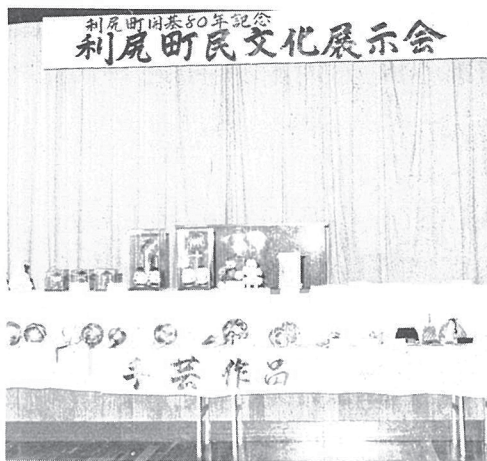 利尻町開基80年記念
利尻町民文化展示会
手芸作品